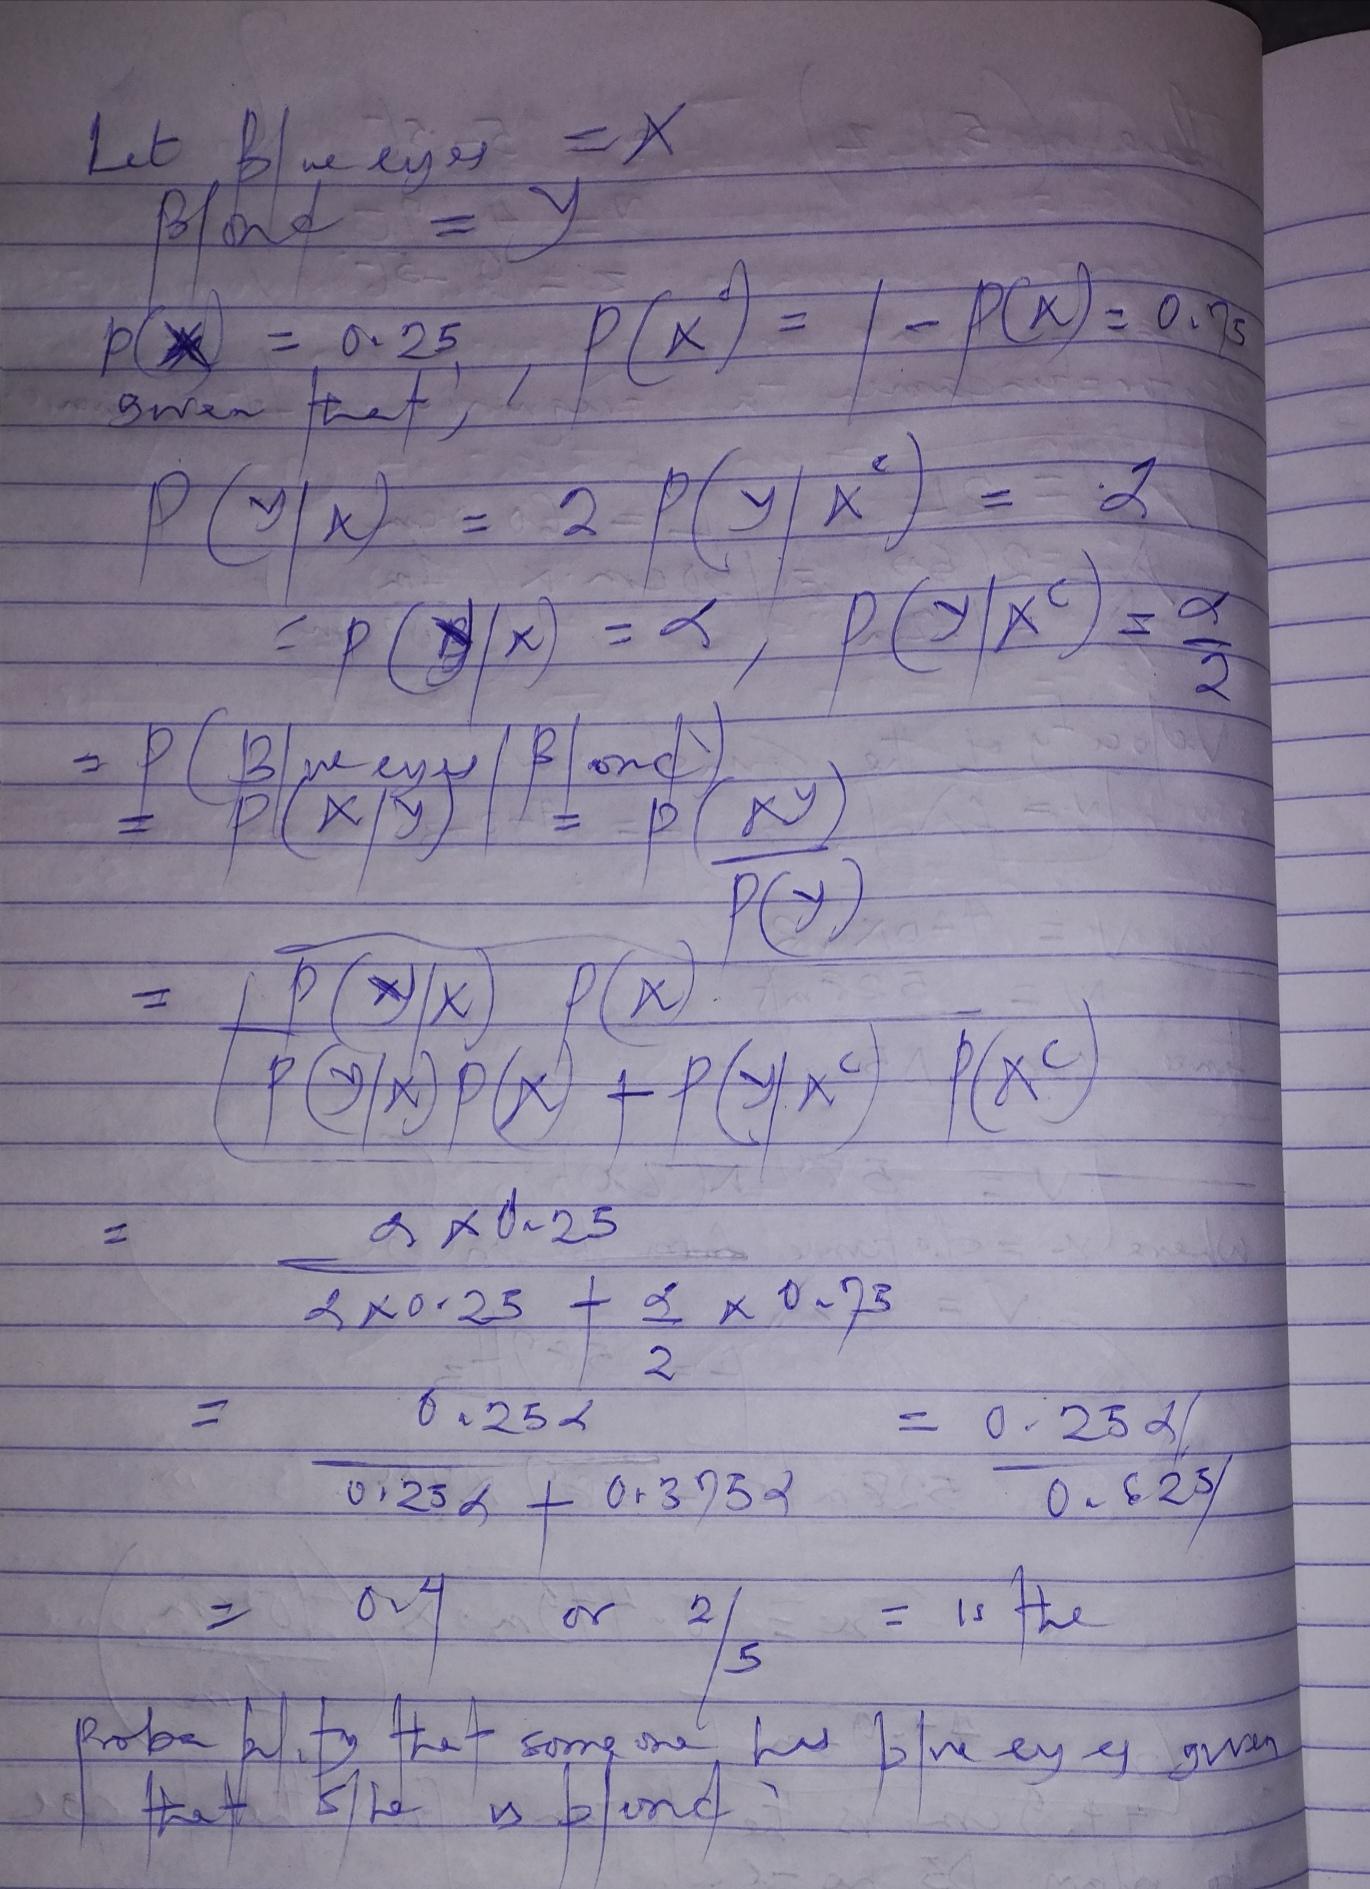 Let Blue eyes = X
Blond = y
P(X) = 0.25, P(X') = 1 - P(X) = 0.75
given that,
P(y|X) = 2 P(y|X^c) = α
= P(y|x) = α, P(y|X^c) = α/2
= P(Blue eyes | Blond)
= P(X|y) = P(xy)/P(y)
= P(y|x) P(x)
P(y|x) P(x) + P(y|x^c) P(x^c)
= α x 0.25
α x 0.25 + α/2 x 0.75
= 0.25α = 0.25α
0.25α + 0.375α 0.625
= 0.4 or 2/5 = is the
Probability that someone has blue eyes given
that S/he is blond